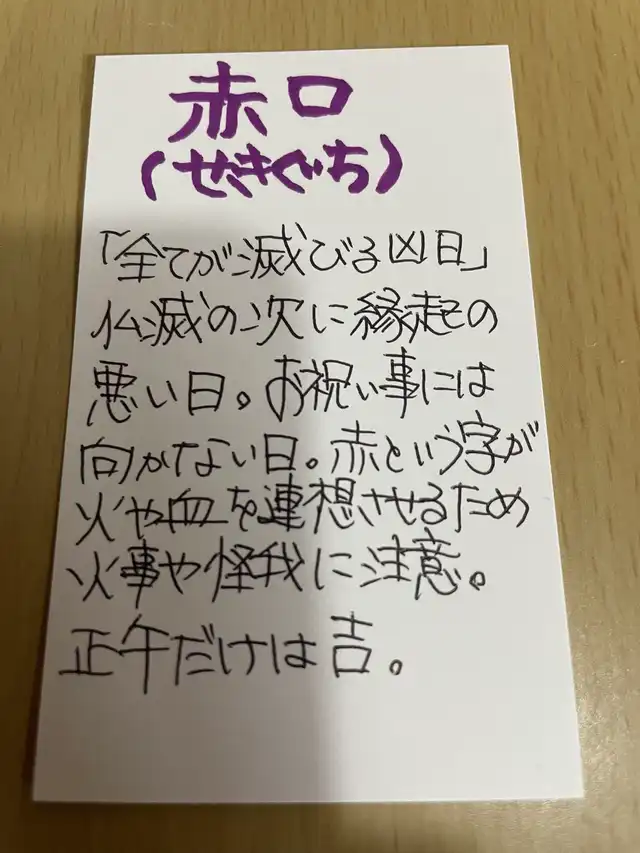 赤口
(せきぐち)
「全てが滅びる凶日」
仏滅の次に縁起の
悪い日。お祝い事には
向かない日。赤という字が
火や血を連想させるため
火事や怪我に注意。
正午だけは吉。